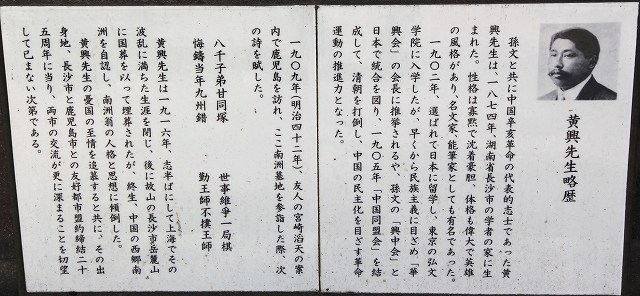 黄興先生略歴
孫文と共に中国辛亥革命の代表的志士であった黄
興先生は、一八七四年、湖南省長沙市の学者の家に生
まれた。性格は寡黙で沈着豪胆、体格も偉大で英雄
の風格があり、名文家、能筆家としても有名であった。
一九〇二年、選ばれて日本に留学し、東京の弘文
学院に入学したが、早くから民族主義に目ざめ「華
興会」の会長に推挙されるや、孫文の「興中会」と
日本で統合を図り、一九〇五年「中国同盟会」を結
成して、清朝を打倒し、中国の民主化を目ざす革命
運動の推進力となった。
一九〇九年(明治四十二年)、友人の宮崎滔天の案
内で鹿児島を訪れ、ここ南洲墓地を参詣した際、次
の詩を賦した。
八千子弟甘同塚 世事維争一局棋
悔鋳当年九州錯 勤王師不撲王師
黄興先生は一九一六年、志半ばにして上海でその
波乱に満ちた生涯を閉じ、後に故山の長沙市岳麓山
に国葬を以って埋葬されたが、終生、中国の西郷南
洲を自認し、南洲翁の人格と思想に傾倒した。
黄興先生の憂国の至情を追慕すると共に、その出
身地、長沙市と鹿児島市との友好都市盟約締結二十
五周年に当り、両市の交流が更に深まることを切望
して已まない次第である。